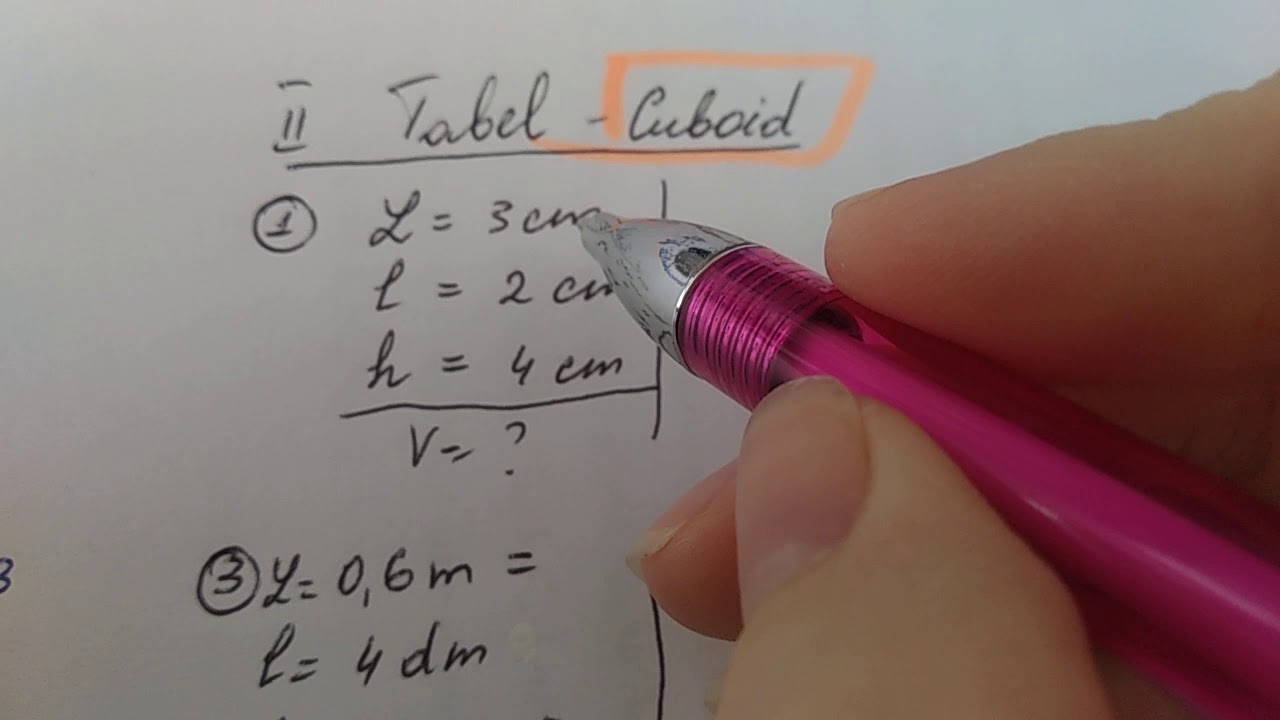 II Tabel - Cuboid
① L = 3 cm
l = 2 cm
h = 4 cm
V = ?
③ L = 0,6 m =
l = 4 dm
3